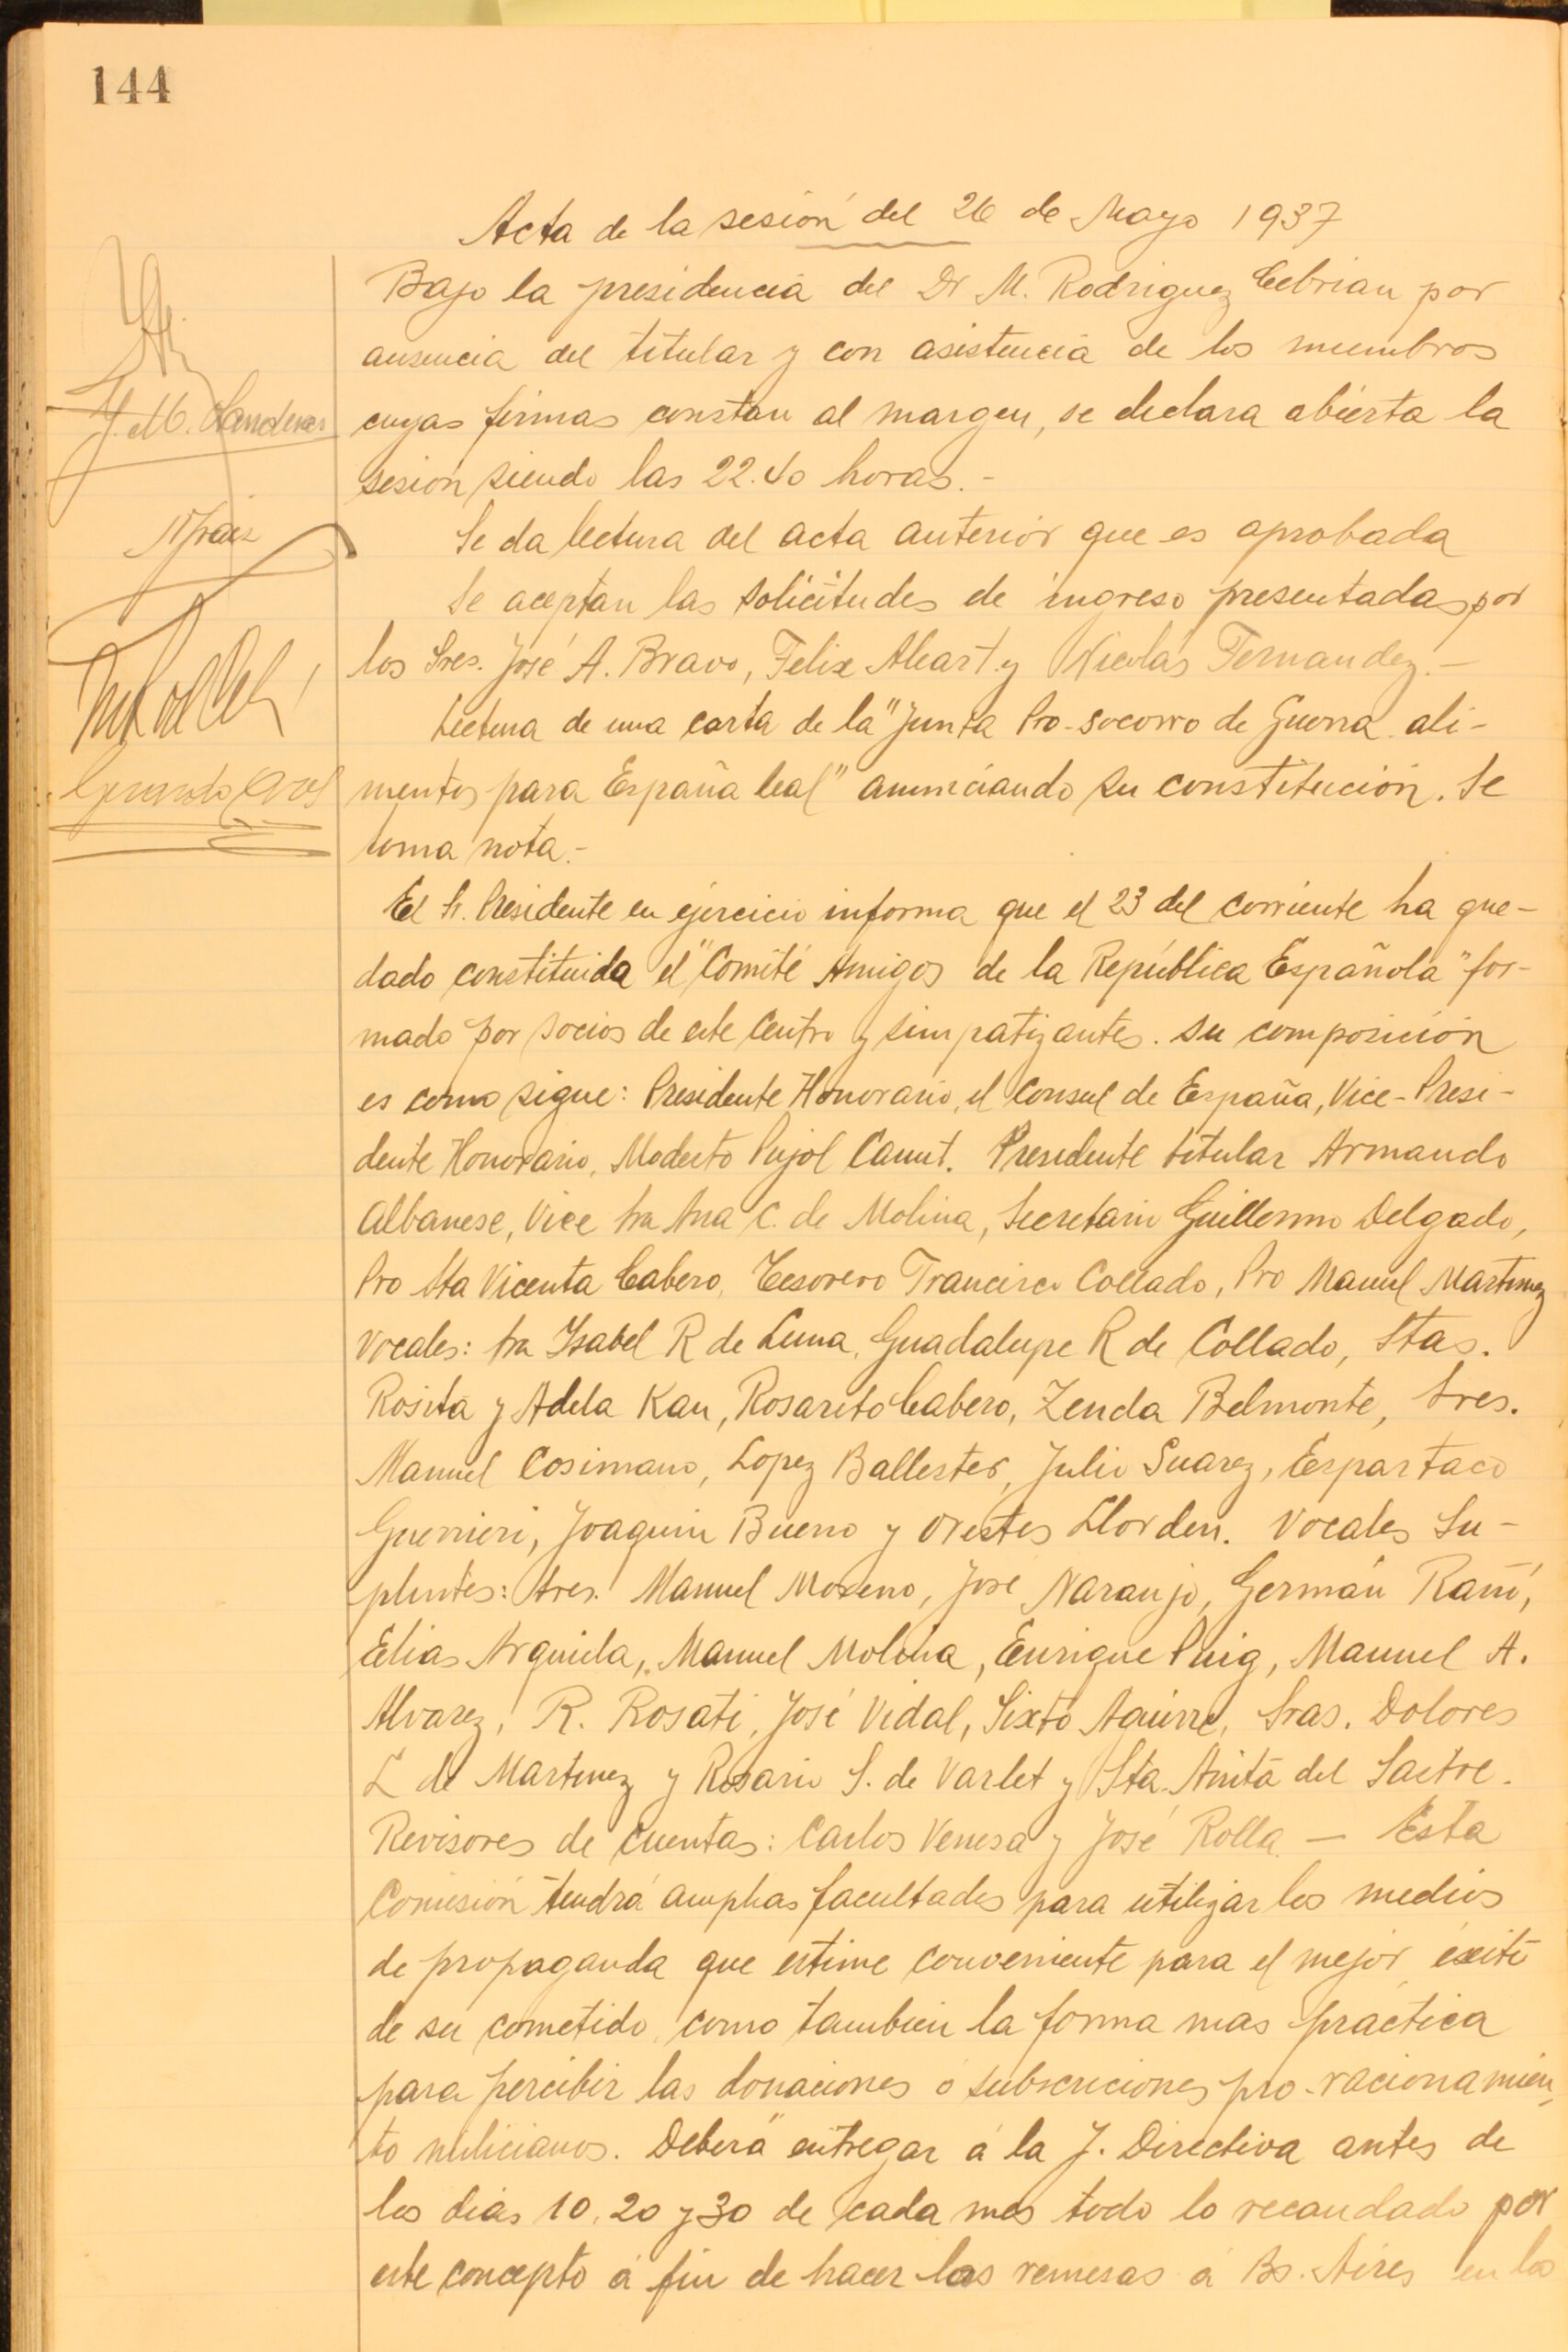 144
Acta de la sesión del 26 de Mayo 1937
Bajo la presidencia del Dr M. Rodriguez Cebrian por
ausencia del titular y con asistencia de los miembros
cuyas firmas constan al margen, se declara abierta la
sesión siendo las 22.40 horas.-
Se da lectura del acta anterior que es aprobada
Se aceptan las solicitudes de ingreso presentadas por
los Sres. José A. Bravo, Felix y Nicolás Fernandez.-
Lectura de una carta de la "Junta Pro-socorro de Guerra ali-
mentos para España leal" anunciando su constitución. Se
toma nota.-
El Sr. Presidente en ejercicio informa que el 23 del corriente ha que-
dado constituida el "Comité Amigos de la República Española" for-
mado por socios de este Centro y simpatizantes. Su composición
es como sigue: Presidente Honorario, el Consul de España, Vice-Presi-
dente Honorario, Modesto Pujol Canut. Presidente titular Armando
Albanese, Vice Sra Ana C. de Molina, Secretario Guillermo Delgado,
Pro Sta Vicenta Cabero, Tesorero Francisco Collado, Pro Manuel Martinez
Vocales: Sra Isabel R de Luna, Guadalupe R de Collado, Stas.
Rosita y Adela Kau, Rosarito Cabero, Zenda Belmonte, Sres.
Manuel Cosimano, Lopez Ballester, Julio Suarez, Espartaco
Guerrieri, Joaquin Bueno y Orestes Llorden. Vocales Su-
plentes: Sres. Manuel Moreno, José Naranjo, Germán Rañó,
Elias Arguila, Manuel Molina, Enrique Puig, Manuel A.
Alvarez, R. Rosati, José Vidal, Sixto Aguirre, Sras. Dolores
L de Martinez y Rosario S. de Varlet y Sta. Anita del Sastre.
Revisores de cuentas: Carlos Venesa y José Rolla - Esta
Comisión tendrá amplias facultades para utilizar los medios
de propaganda que estime conveniente para el mejor éxito
de su cometido, como tambien la forma mas práctica
para percibir las donaciones ó subscriciones pro-racionamien-
to milicianos. Deberá entregar á la J. Directiva antes de
los dias 10, 20 y 30 de cada mes todo lo recaudado por
este concepto á fin de hacer las remesas á Bs. Aires en los